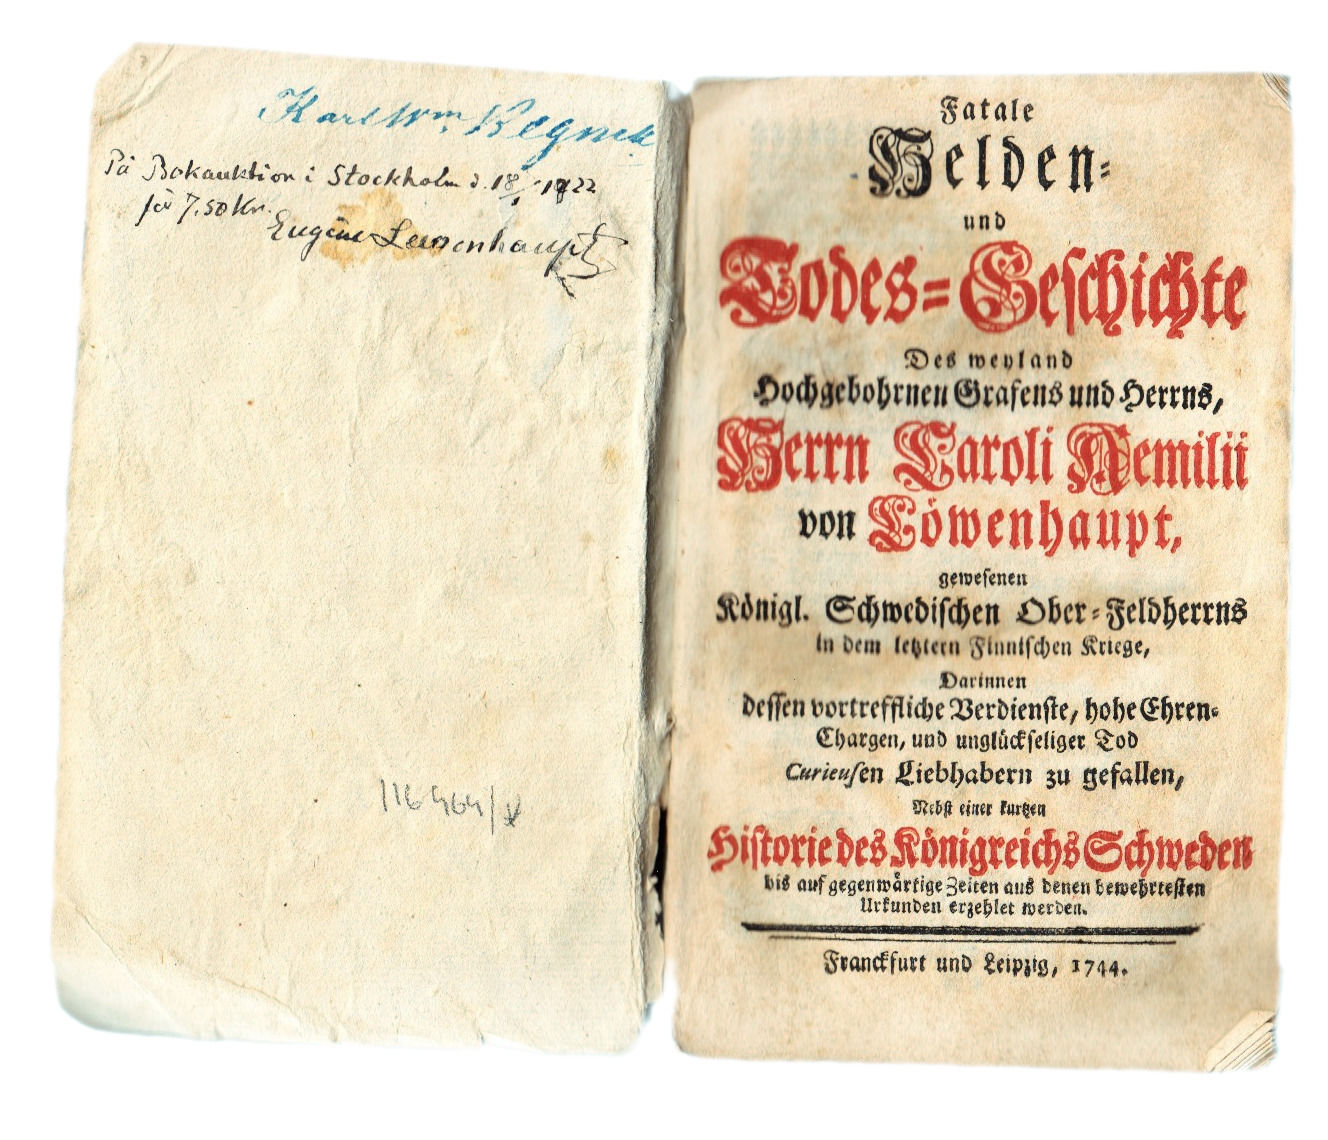 Karl Wm.
På Bokauktion i Stockholm d. 18/1 1922
för 7.50 Kr.
Eugène Lewenhaupt
116464/x
Fatale
Helden-
und
Todes-Geschichte
Des weyland
Hochgebohrnen Grafens und Herrns,
Herrn Caroli Aemilii
von Löwenhaupt,
gewesenen
Königl. Schwedischen Ober-Feldherrns
in dem letztern Finnischen Kriege,
Darinnen
dessen vortreffliche Verdienste, hohe Ehren-
Chargen, und unglückseliger Tod
Curieusen Liebhabern zu gefallen,
Nebst einer kurtzen
Historie des Königreichs Schweden
bis auf gegenwärtige Zeiten aus denen bewehrtesten
Urkunden erzehlet werden.
Franckfurt und Leipzig, 1744.